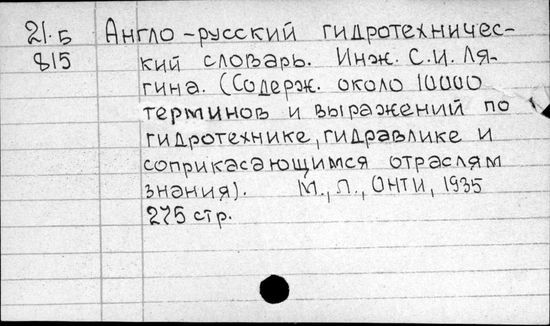 21.Б Англо-русский гидротехничес-
815 кий словарь. Инж. С.И. Ля-
гина. (Содерж. около 10000
терминов и выражений по
гидротехнике, гидравлике и
соприкасающимся отраслям
знания). М., Л., Онти, 1935
275 стр.